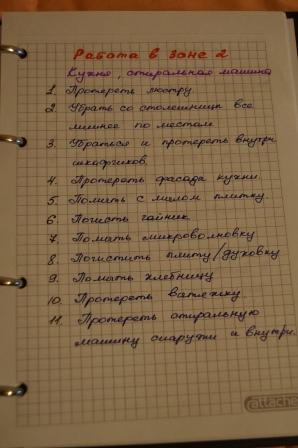 Работа в зоне 2
Кухня, стиральная машина
1. Протереть люстру
2. Убрать со столешницы все
лишнее по местам
3. Убраться и протереть внутри
шкафчиков.
4. Протереть фасада кухни.
5. Помыть с мылом плитку.
6. Почисть чайник
7. Помыть микроволновку
8. Почистить плиту/духовку
9. Помыть хлебницу
10. Протереть вытяжку.
11. Протереть стиральную
машину снаружи и внутри.
attache